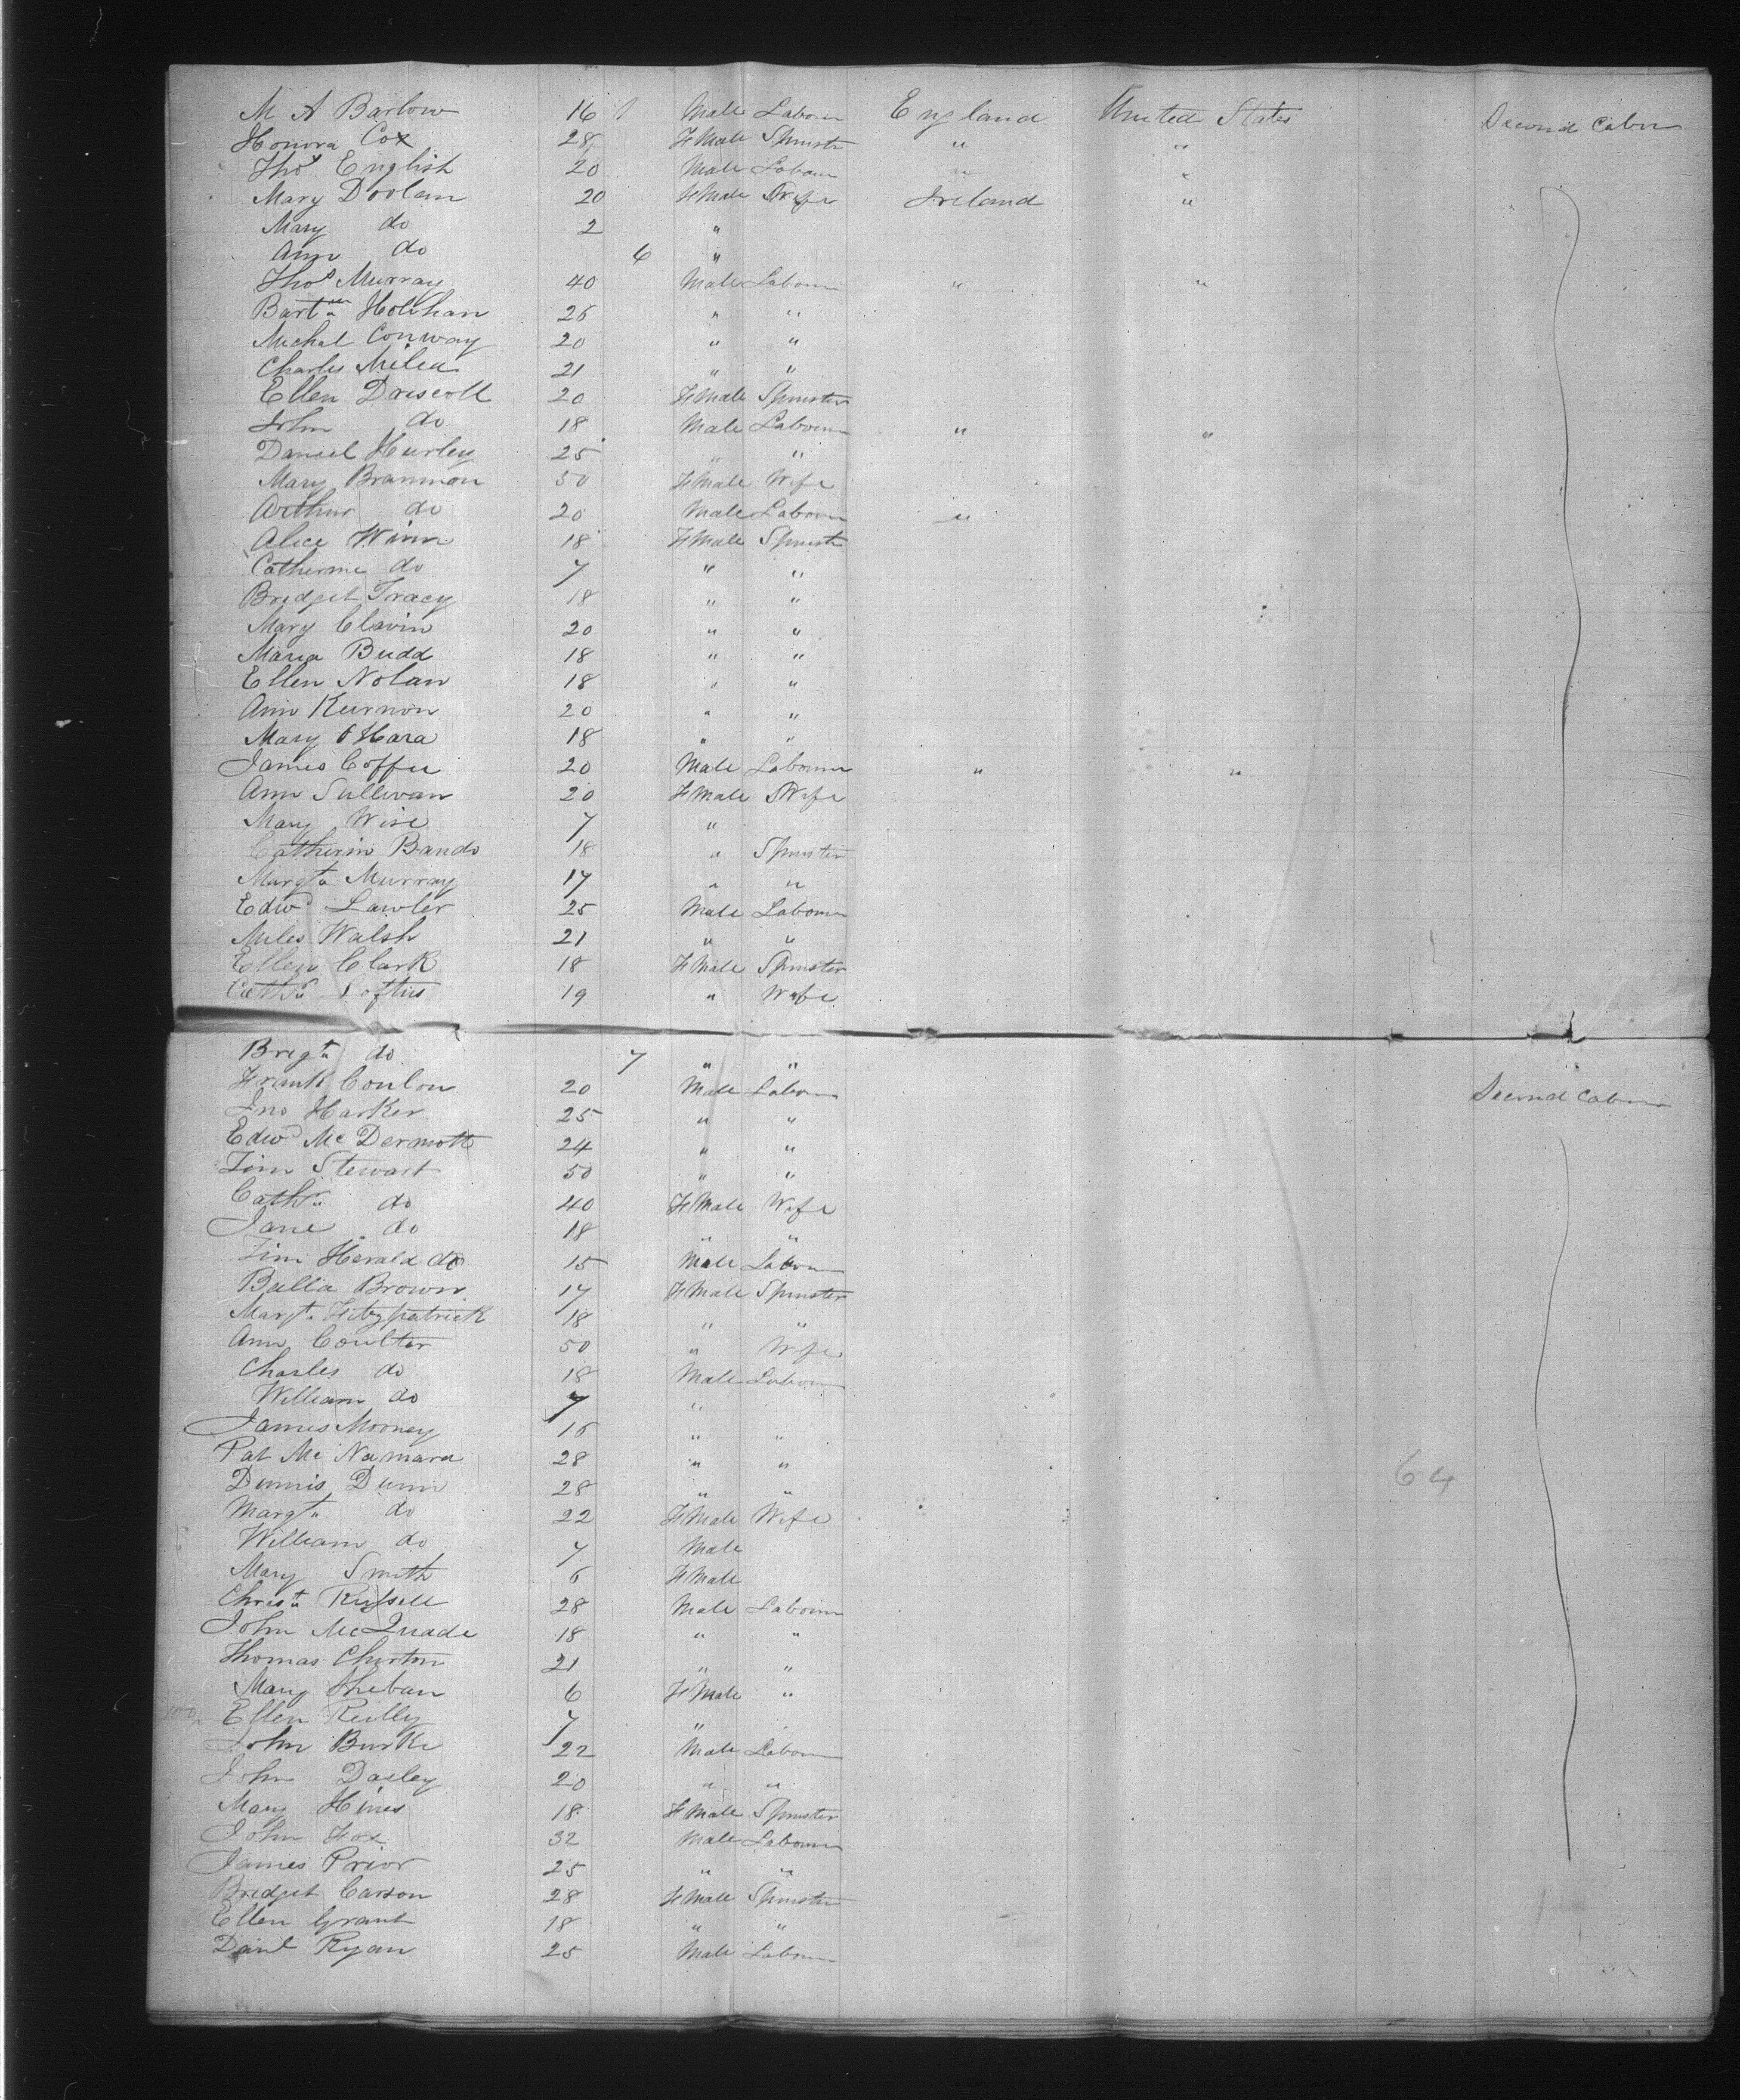 M A Barlow 16 Male Labour England United States Second Cabin
Honora Cox 28 FMale Spinstr " "
Thos English 20 Male Labour " "
Mary Doolan 20 FMale Wife Ireland "
Mary do 2 "
Ann do 6 "
Thos Murray 40 Male Labour " "
Bartw Holihan 26 " "
Michal Conway 20 " "
Charles Milea 21 " "
Ellen Driscoll 20 FMale Spinster
John do 18 Male Labour " "
Daniel Hurley 25 " "
Mary Brannon 50 FMale Wife
Arthur do 20 Male Labour "
Alice Winn 18 FMale Spinstr
Catherine do 7 " "
Bridget Tracy 18 " "
Mary Clavin 20 " "
Maria Budd 18 " "
Ellen Nolan 18 " "
Ann Kurnon 20 " "
Mary O Hara 18 " "
James Coffee 20 Male Labour " "
Ann Sullivan 20 FMale Wife
Mary Wise 7 "
Catherin Bando 18 " Spinster
Margt Murray 17 " "
Edwd Lawler 25 Male Labour
Miles Walsh 21 " "
Ellen Clark 18 FMale Spinster
Cathn Loftus 19 " Wife
Brigt do 7 " "
Frank Conlon 20 Male Labour Second Cabin
Jno Harker 25 " "
Edwd Mc Dermott 24 " "
Jim Stewart 50 " "
Cathn do 40 FMale Wife
Jane do 18 " "
Jim Herald do 15 Male Labour
Bella Brown 17 FMale Spinster
Margt Fitzpatrick 18 " "
Ann Coulter 50 " Wife
Charles do 18 Male Labour
William do 7 "
James Mooney 16 " "
Pat Mc Namara 28 " " 64
Dennis Dunn 28 " "
Margt do 22 FMale Wife
William do 7 Male
Mary Smith 6 FMale
Christ Russell 28 Male Labour
John McQuade 18 " "
Thomas Churton 21 " "
Mary Sheban 6 FMale "
100 Ellen Reilly 7 "
John Burke 22 Male Labour
John Dasley 20 " "
Mary Hines 18 FMale Spinster
John Fox 32 Male Labour
James Prior 25 " "
Bridget Carson 28 FMale Spinstr
Ellen Grant 18 " "
Danl Ryan 25 Male Labour